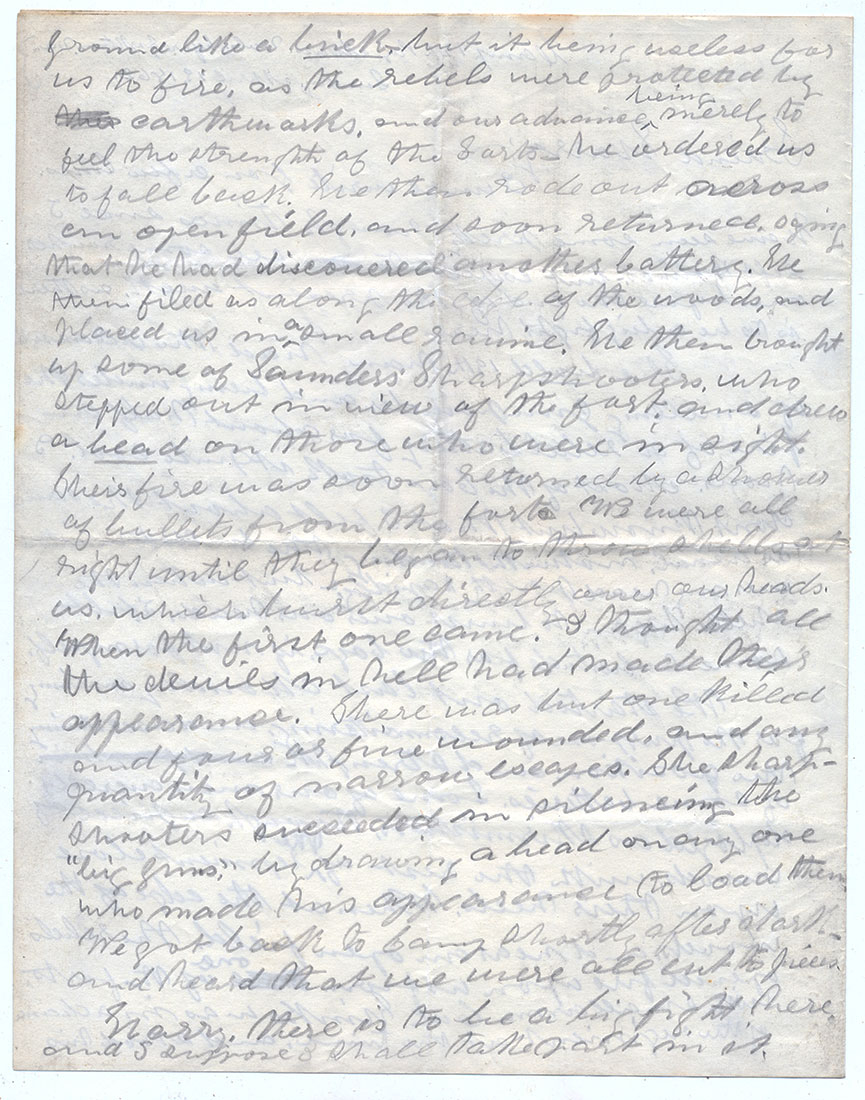 ground like a brick, but it being useless for
us to fire, as the rebels were protected by
earthworks, and our advance being merely to
feel the strenght of the Forts he ordered us
to fall back. He then rode out across
an open field, and soon returned,
that he had discovered another battery. He
then filed us along the edge of the woods, and
placed us in a small ravine. He then brought
up some of Saunders Sharpshooters, who
stepped out in view of the fort, and drew
a bead on those who were in sight.
Their fire was soon returned by a shower
of bullets from the forts We were all
right until they began to throw shells at
us, which burst directly over our heads.
When the first one came. I thought all
the devils in hell had made their
appearance. There was but one killed
and four or five wounded, and any
quantity of narrow escapes. The sharp-
shooters suceeded in silencing the
"big guns," by drawing a bead on any one
who made his appearance to load them
We got back to camp shortly after dark
and heard that we were all cut to pieces
Harry, there is to be a big fight here,
and I suppose I shall take part in it.